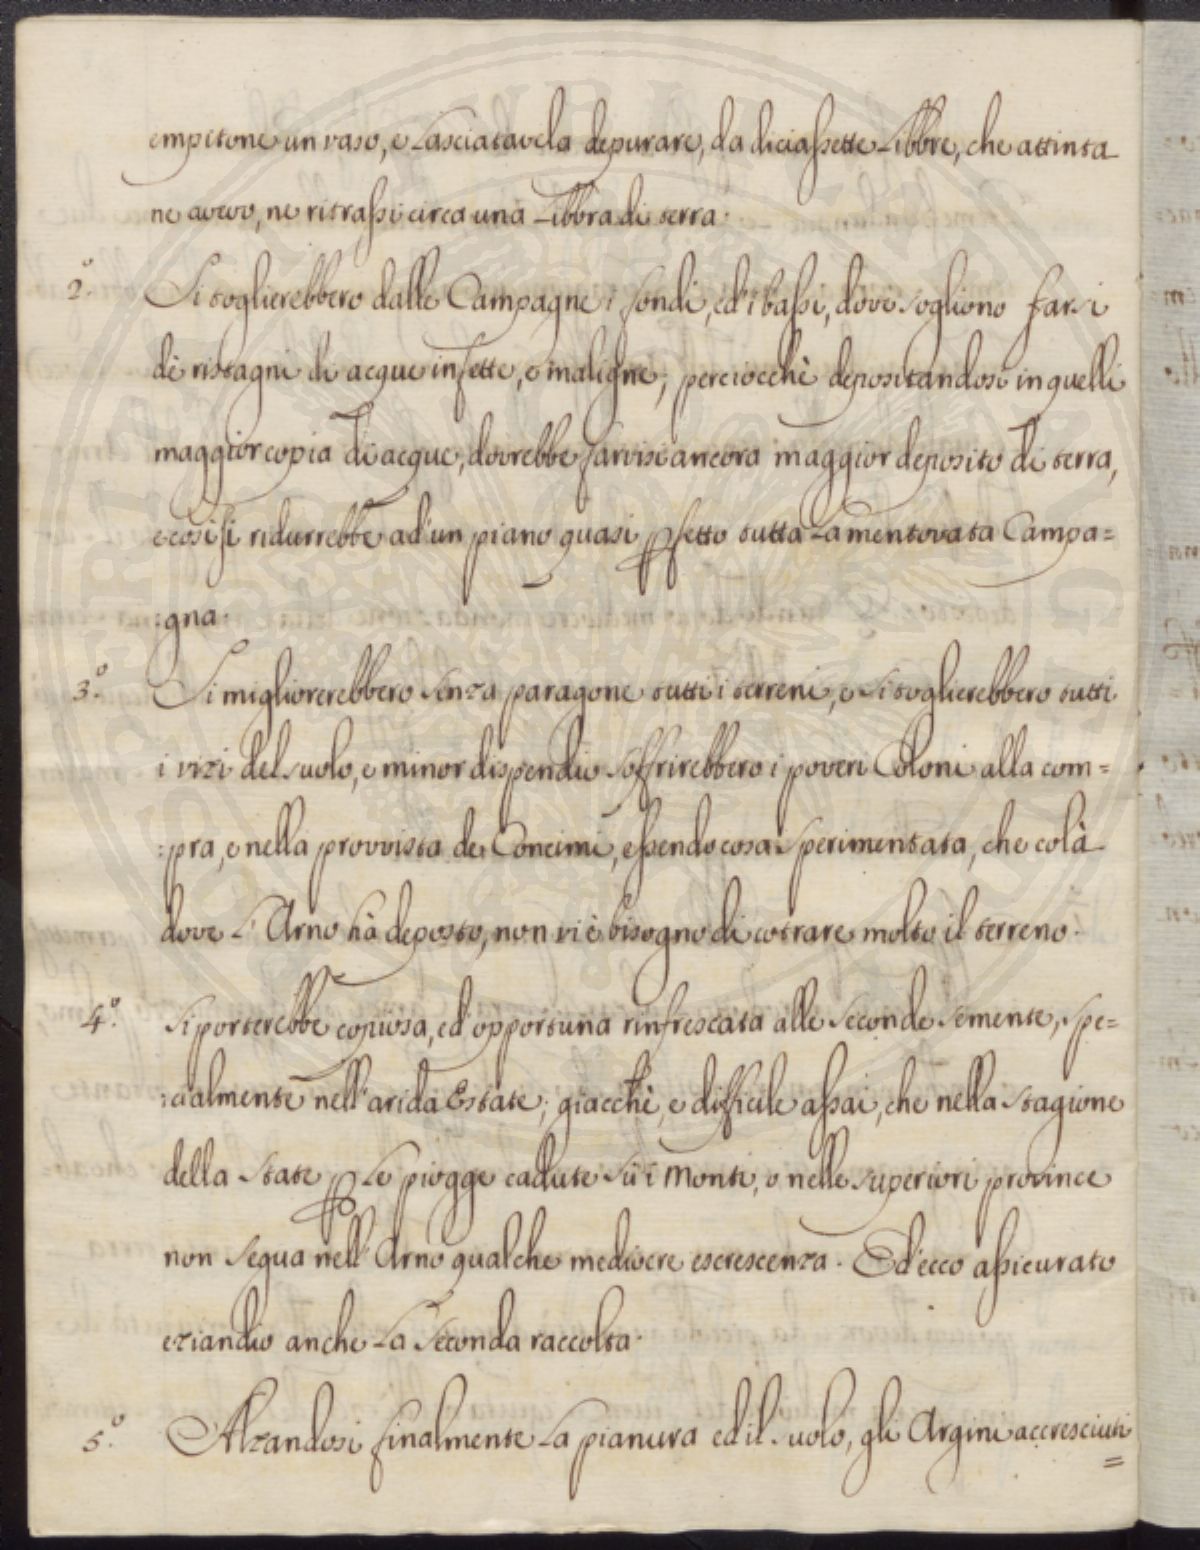 empitone un vaso, e lasciatavela depurare, da diciassette Libbre, che attinta
ne avevo, ne ritrassi circa una Libbra di terra.
2.° Si toglierebbero dalle Campagne i fondi, ed i bassi, dove sogliono farsi
dè ristagni di acque infette, e maligne; perciocchè depositandosi in quelli
maggior copia di acque, dovrebbe farvisi ancora maggior deposito di terra,
e così si ridurrebbe ad un piano quasi pfetto tutta la mentovata Campa=
:gna.
3.° Si migliorerebbero senza paragone tutti i terreni, e si toglierebbero tutti
i vizi del suolo, e minor dispendio soffrirebbero i poveri Coloni alla com=
:pra, e nella provvista de Concimi, essendo cosa sperimentata, che colà
dove l'Arno hà deposto, non vi è bisogno di cotrare molto il terreno.
4.° Si porterebbe copiosa, ed opportuna rinfrescata alle seconde semente, spe=
:cialmente nell'arida Estate; giacchè, e difficile assai, che nella stagione
della State p le piogge cadute sù i Monti, o nelle superiori province
non segua nell'Arno qualche mediocre escrescenza. Ed ecco assicurato
eziandio anche la seconda raccolta.
5.° Alzandosi finalmente la pianura ed il suolo, gli Argini accresciuti
=